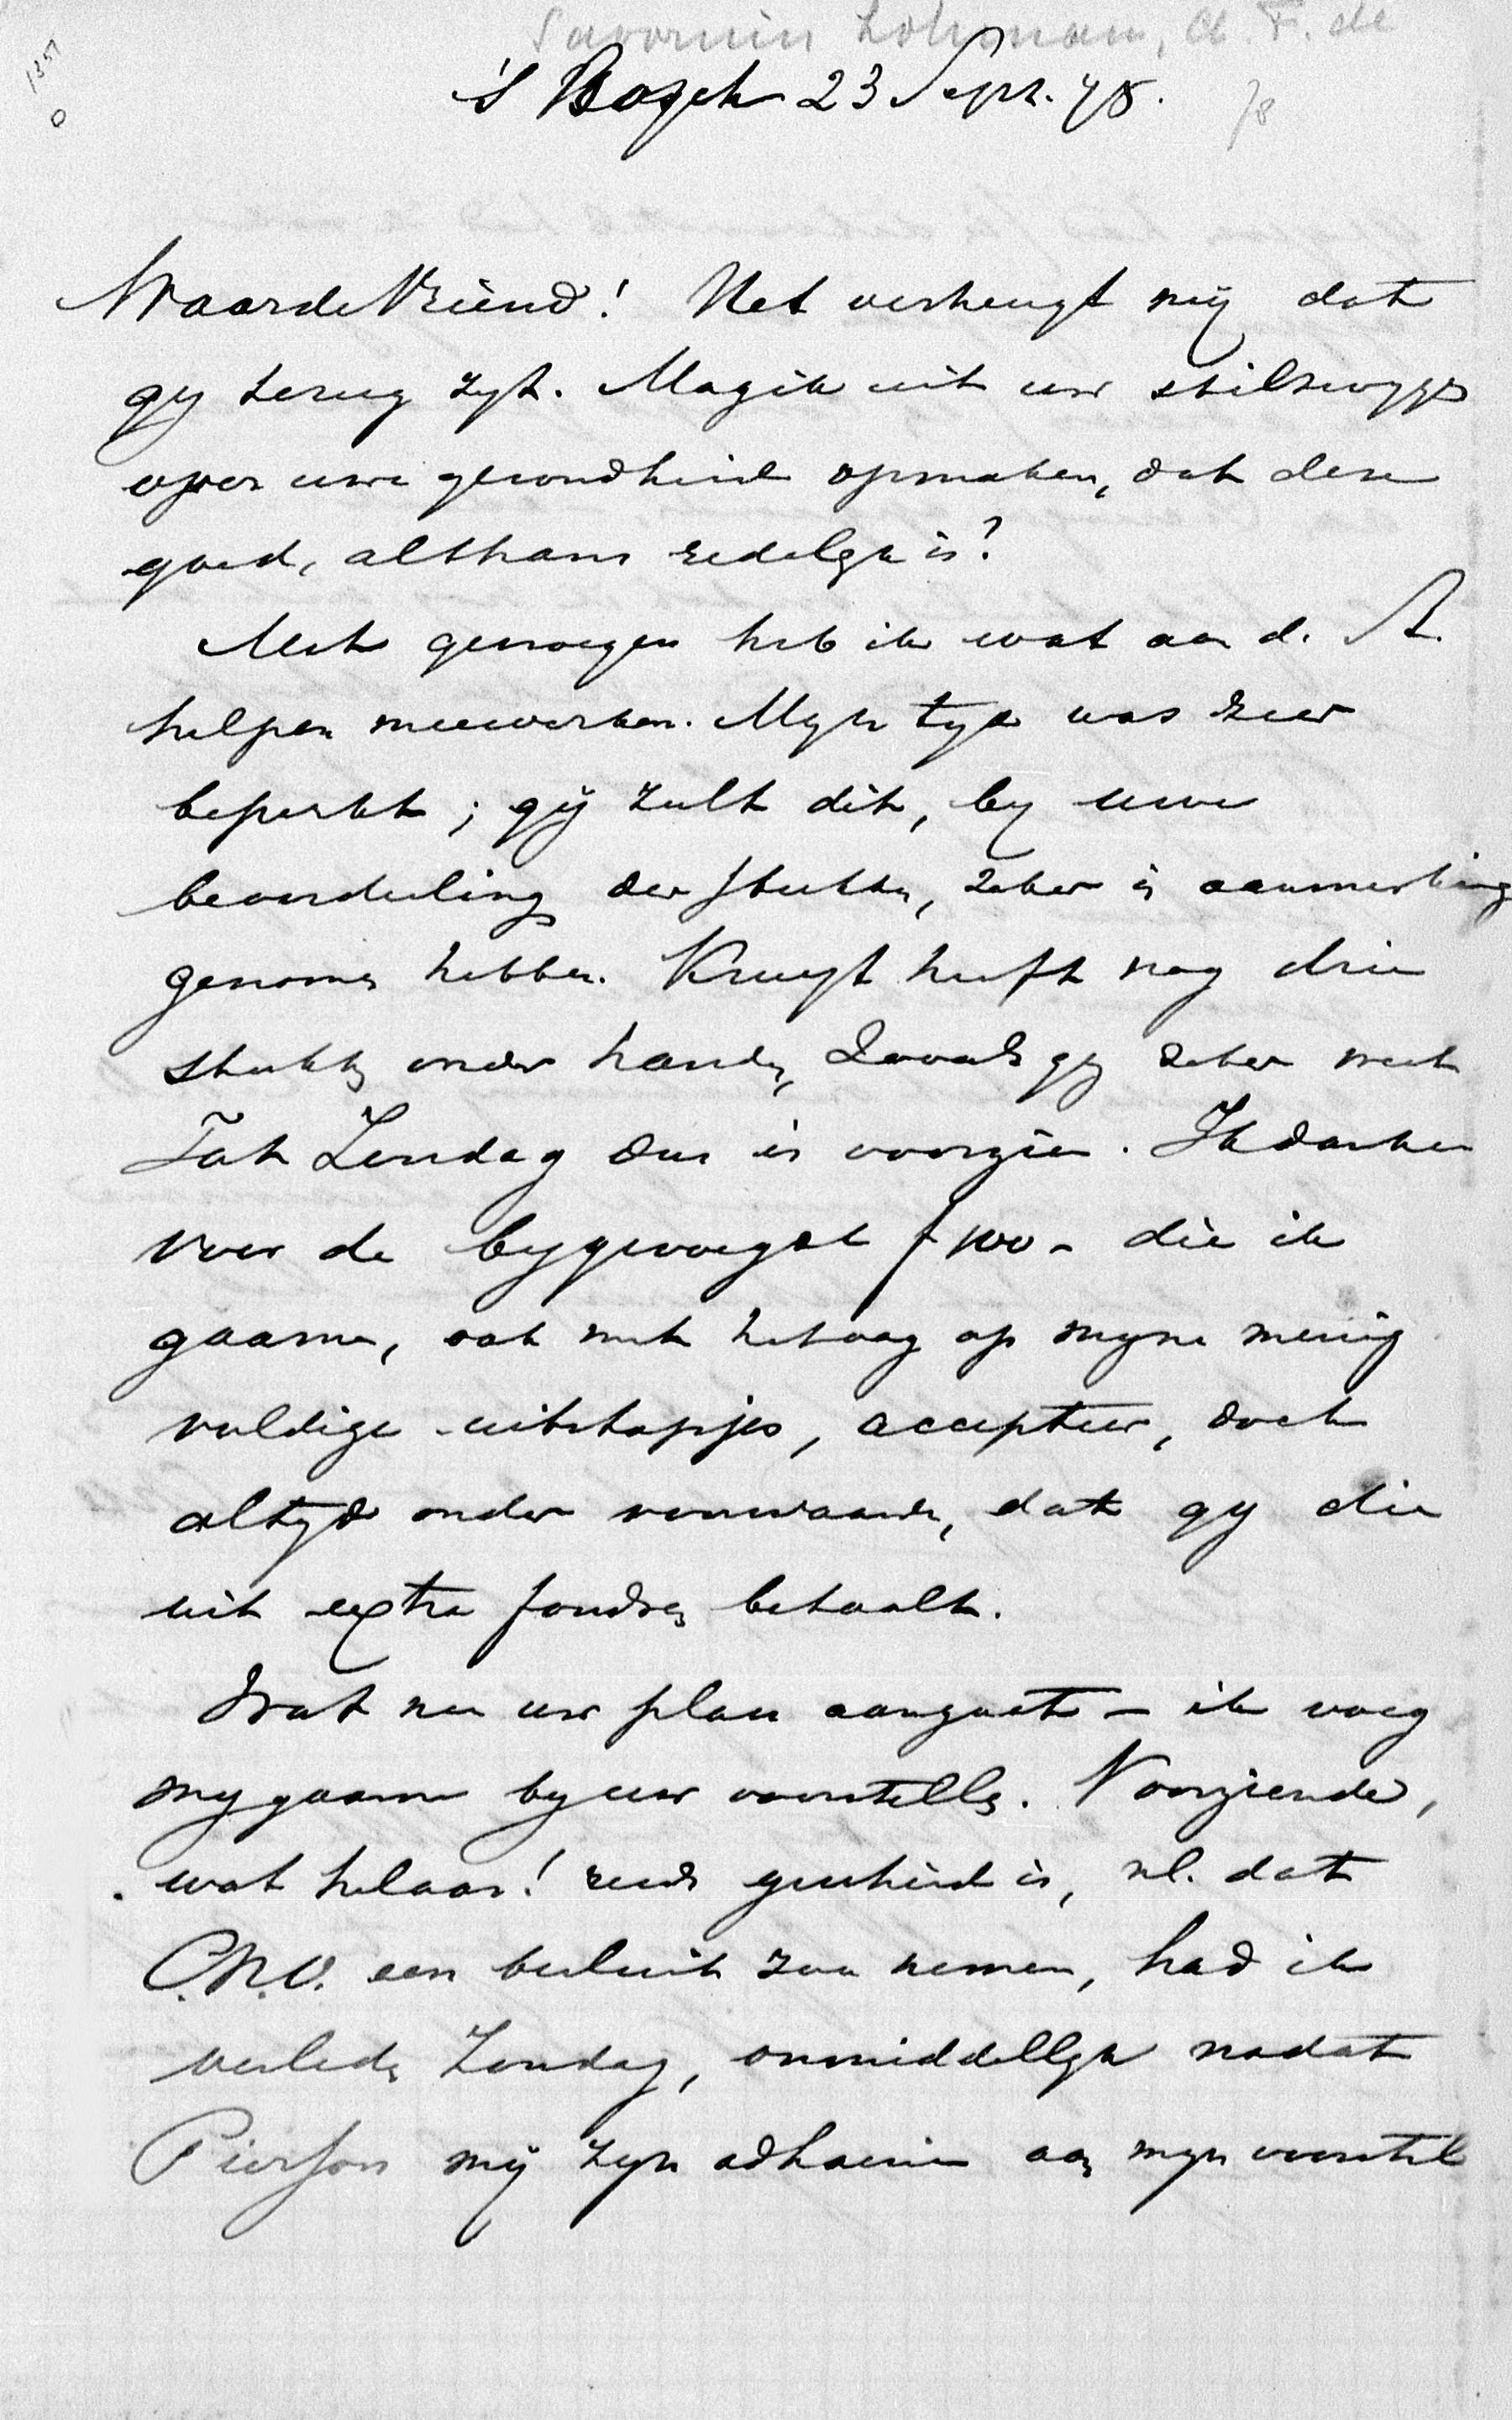 Savornin Lohman, A. F. de
1351
0
's Bosch 23 Sept. 78.
78
Waarde Vriend! Het verheugt mij dat
gy terug zyt. Mag ik uit uw stilzwygen
over uwe gezondheid opmaken, dat deze
goed, althans redelyk is?
Met genoegen heb ik wat aan d. St.
helpen meewerken. Myn tyd was zeer
beperkt; gij zult dit, by uwe
beoordeeling der stukken, zeker in aanmerking
genomen hebben. Kruyt heeft nog drie
stukken onder handen, zoodat gy zeker met
Tot Zondag dus is voorzien. Ik dank u
voor de bygevoegde f 100 - die ik
gaarne, ook met het oog op myne menig
vuldige uitstapjes, accepteer, doch
altyd onder voorwaarde, dat gy die
uit extra fondsen betaalt.
Wat nu uw plan aangaat - ik voeg
my gaarne by uw voorstellen. Voorziende,
wat helaas! reeds geschied is, nl. dat
C.N.O. een besluit zou nemen, had ik
verleden Zondag, onmiddellyk nadat
Pierson mij zyn adhaesie aan myn voorstel